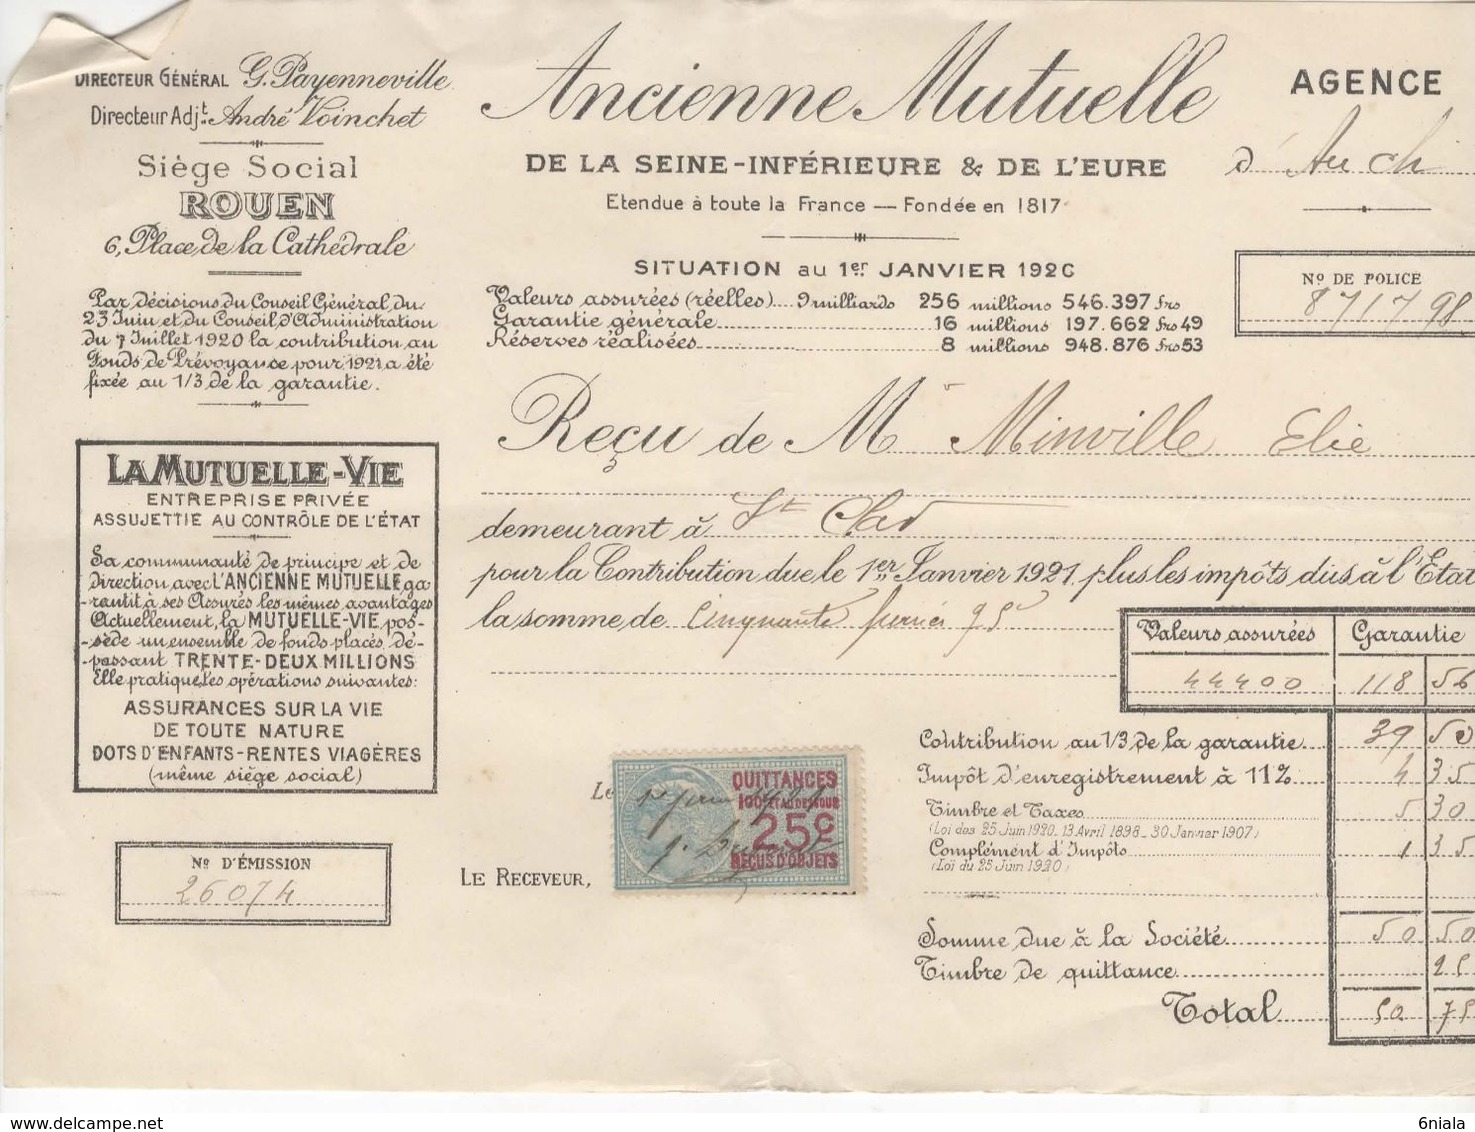 DIRECTEUR GÉNÉRAL G. Payenneville
Directeur Adjt. André Voinchet
Siège Social
ROUEN
6, Place de la Cathédrale
Par décisions du Conseil Général du
23 Juin et du Conseil d'Administration
du 7 Juillet 1920 la contribution au
Fonds de Prévoyance pour 1921 a été
fixée au 1/3 de la garantie.
LA MUTUELLE-VIE
ENTREPRISE PRIVÉE
ASSUJETTIE AU CONTRÔLE DE L'ÉTAT
Sa communauté de principe et de
direction avec L'ANCIENNE MUTUELLE ga-
-rantit à ses Assurés les mêmes avantages
Actuellement, la MUTUELLE-VIE pos-
-sède un ensemble de fonds placés, dé-
-passant TRENTE-DEUX MILLIONS
Elle pratique les opérations suivantes:
ASSURANCES SUR LA VIE
DE TOUTE NATURE
DOTS D'ENFANTS-RENTES VIAGÈRES
(même siège social)
No D'ÉMISSION
26074
Ancienne Mutuelle
DE LA SEINE-INFÉRIEURE & DE L'EURE
Etendue à toute la France — Fondée en 1817
SITUATION au 1er JANVIER 1920
Valeurs assurées (réelles) 9 milliards 256 millions 546.397 frs
Garantie générale 16 millions 197.662 frs 49
Réserves réalisées 8 millions 948.876 frs 53
AGENCE
d'Auch
No DE POLICE
871798
Reçu de Mr Minville Elie
demeurant à St Clar
pour la Contribution due le 1er Janvier 1921, plus les impôts dûs à l'État
la somme de Cinquante francs 75c
Valeurs assurées Garantie
44400 118 56
Contribution au 1/3 de la garantie 39 50
Impôt d'enregistrement à 11% 4 35
Timbre et Taxes 5 30
(Loi des 25 Juin 1920 - 13 Avril 1898 - 30 Janvier 1907)
Complément d'Impôts 1 35
(Loi du 25 Juin 1920)
Somme due à la Société 50 50
Timbre de quittance 25
Total 50 75
Le
1er janvier 1921
QUITTANCES
100F ET AU DESSOUS
25c
REÇUS D'OBJETS
LE RECEVEUR,
6niala